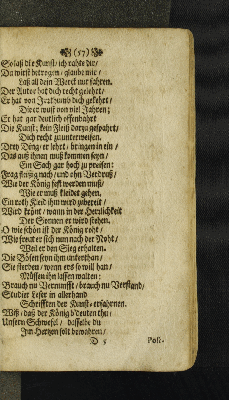 (57)
So laß die Kunst/ ich rahte dir/
Du wirst betrogen/ glaube mir/
Laß all dein Werck nur fahren.
Der Autor hat dich recht gelehrt/
Er hat von Irrthumb dich gekehrt/
Die er wust von viel Jahren;
Er hat gar deutlich offenbahrt
Die Kunst; kein Fleiß darzu gespahrt/
Dich recht zu unterweisen.
Drey Ding/ er lehrt/ bringen in ein/
Das auß ihnen muß kommen seyn/
Ein Sach gar hoch zu preisen:
Frag fleissig nach/ und ohn Verdruß/
Was der König sey werden muß/
Wie er muß kleidet gehen.
Ein roth Kleid ihm wird zubereit/
Wird krönt/ wann in der Herrlichkeit
Der Sonnen er wird stehen.
O wie schön ist der König roht/
Wie frewt er sich nun nach der Noht/
Weil er den Sieg erhalten.
Die Bösen seyn ihm unterthan/
Sie sterben/ wenn ers so will han/
Müssen ihn lassen walten:
Brauch nu Vernunfft/ brauch nu Verstand/
Studier Leser in allerhand
Schrifften der Kunst-erfahrnen.
Wiß/ daß der König bdeuten thu/
Unsern Schwefel/ dasselbe du
Im Hertzen solt bewahren/
D 5
Post-